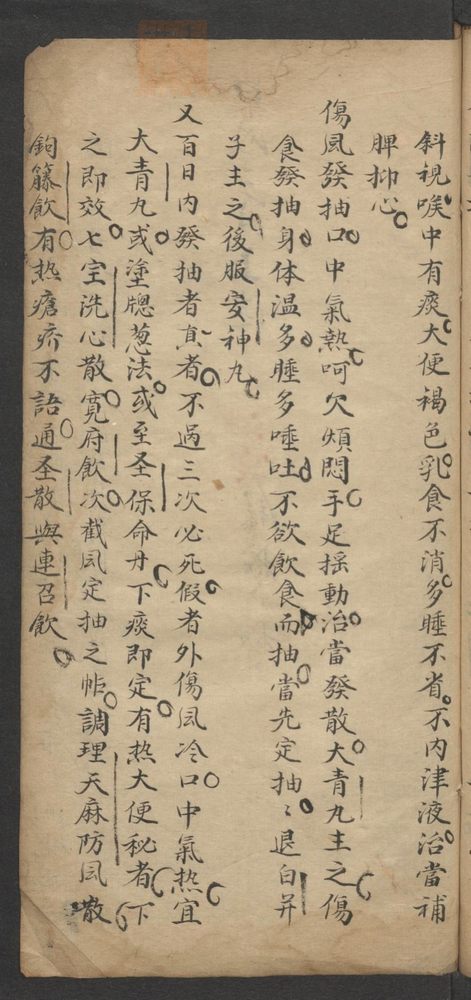 斜視喉中有痰大便褐色乳食不消多睡不省不内津液治當補
脾抑心
傷風發抽口中氣熱呵欠煩悶手足揺動治當發散大青九主之傷
食發抽身体温多睡多唾吐不欲飲食而抽當先定抽〻退白并
子主之後服安神九
又百日内發抽者真者不過三次必死假者外傷風冷口中氣熱宜
大青九或塗牕葱法或至圣保命丹下痰即定有热大便秘者下
之即效七宝洗心散寛府飲次截風定抽之帖調理天麻防風散
鈎籐飲有热瘡疥不語通圣散與連召飲